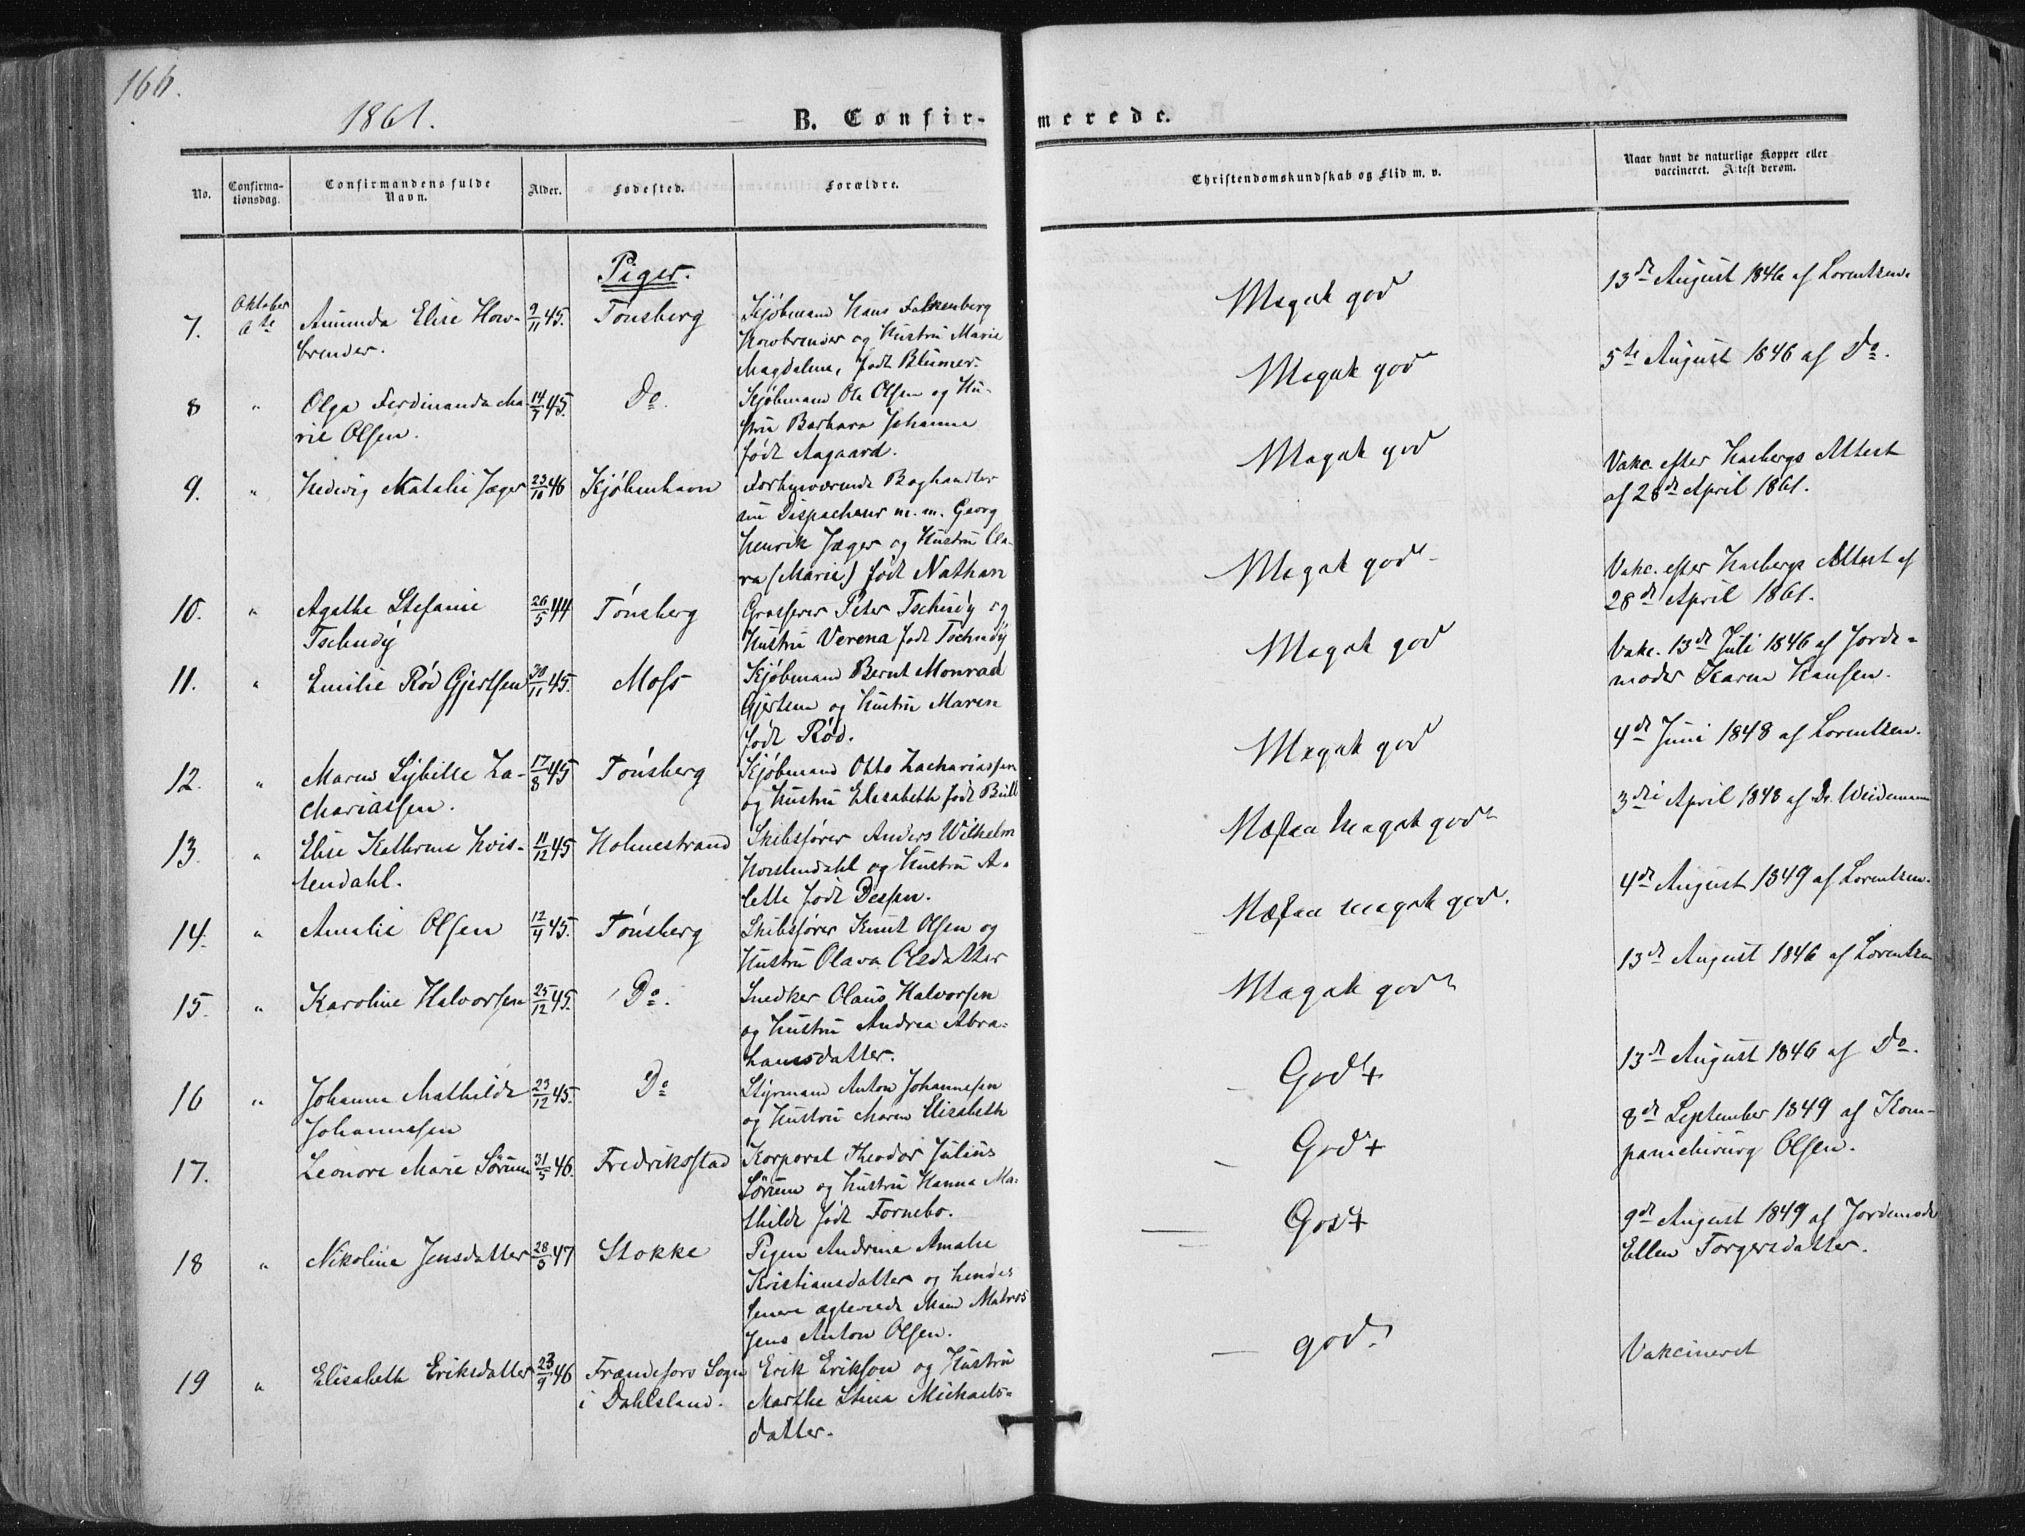 166.
1861.
B. Confir-
merede.
No.
Confirma-
tionsdag.
Confirmandens fulde
Navn.
Alder.
Fødested.
Forældre.
Christendomskundskab og Flid m. v.
Naar havt de naturlige Kopper eller
vaccineret. Attest derom.
Piger.
7.
Oktober
6te
Amunda Elise How-
brender.
9/11 45.
Tønsberg
Kjøbmand Hans Falkenberg
Howbrender og Hustru Marie
Magdalene, født Blumer.
Meget god
13de August 1846 af Lorentzen.
8
"
Olga Ferdinanda Ma-
rie Olsen.
14/7 45.
Do.
Kjøbmand Ole Olsen og Hu-
stru Barbara Johanne
født Aagaard.
Meget god
5te August 1846 af Do.
9.
"
Hedevig Natalie Jæger
23/10 46
Kjøbenhavn
Forhenværende Boghandler
nu Dispacheur m. m. Georg
Henrik Jæger og Hustru Cla-
ra (Marie) født Nathan
Meget god
Vakc. efter Hasbergs Attest
af 28de April 1861.
10.
"
Agathe Stefanie
Tschudÿ
26/5 44
Tønsberg
Grosserer Peter Tschudÿ og
Hustru Verena født Tschudÿ
Meget god
Vakc. efter Hasbergs Attest af
28de April 1861.
11.
"
Emilie Rød Gjertsen
30/11 45.
Moss
Kjøbmand Bernt Monrad
Gjertsen og Hustru Maren
født Rød.
Meget god
Vakc. 13de Juli 1846 af Jorde-
moder Karen Hansen.
12.
"
Maren Sybille Za-
chariassen.
17/8 45
Tønsberg
Kjøbmand Otto Zachariassen
og Hustru Elisabeth født Bull
Meget god
4de Juni 1848 af Lorentzen.
13.
"
Elise Kathrine Hvis-
lendahl.
11/12 45
Holmestrand
Skibsfører Anders Wilhelm
og Hustru A-
lette født
Næsten Meget god
3die April 1848 af Dr. Weidemann
14.
"
Amalie Olsen
12/9 45.
Tønsberg
Skibsfører Knut Olsen og
Hustru Olava Olsdatter
Næsten meget god.
4de August 1849 af Lorentzen.
15.
"
Karoline Halvorsen
25/12 45.
Do.
Snedker Olaus Halvorsen
og Hustru Andrea Abra-
hamsdatter.
Meget god
13de August 1846 af Lorentzen
16
"
Johanne Mathilde
Johannessen
23/12 45.
Do
Styrmand Anton Johannesen
og Hustru Maren Elisabeth
God +
13de August 1846 af Do.
17.
Leonore Marie Sørum
31/5 46.
Fredriksstad
Korporal Theodor Julius
Sørum og Hustru Hanna Ma-
thilde født Fornebo.
God +
8de September 1849 af Kom-
pachirurg Olsen.
18
"
Nikoline Jensdatter
28/3 47
Stokke
Pigen Andrine Amalie
Kristiansdatter og hendes
senere ægteviede Mand Matros
Jens Anton Olsen.
God +
9de August 1849 af Jordemoder
Ellen Torgersdatter.
19
"
Elisabeth Eriksdatter
23/9 46
Frændefors Sogn
i Dahlsland.
Erik Erikson og Hustru
Marthe Stina Michaels-
datter.
god.
Vakcineret